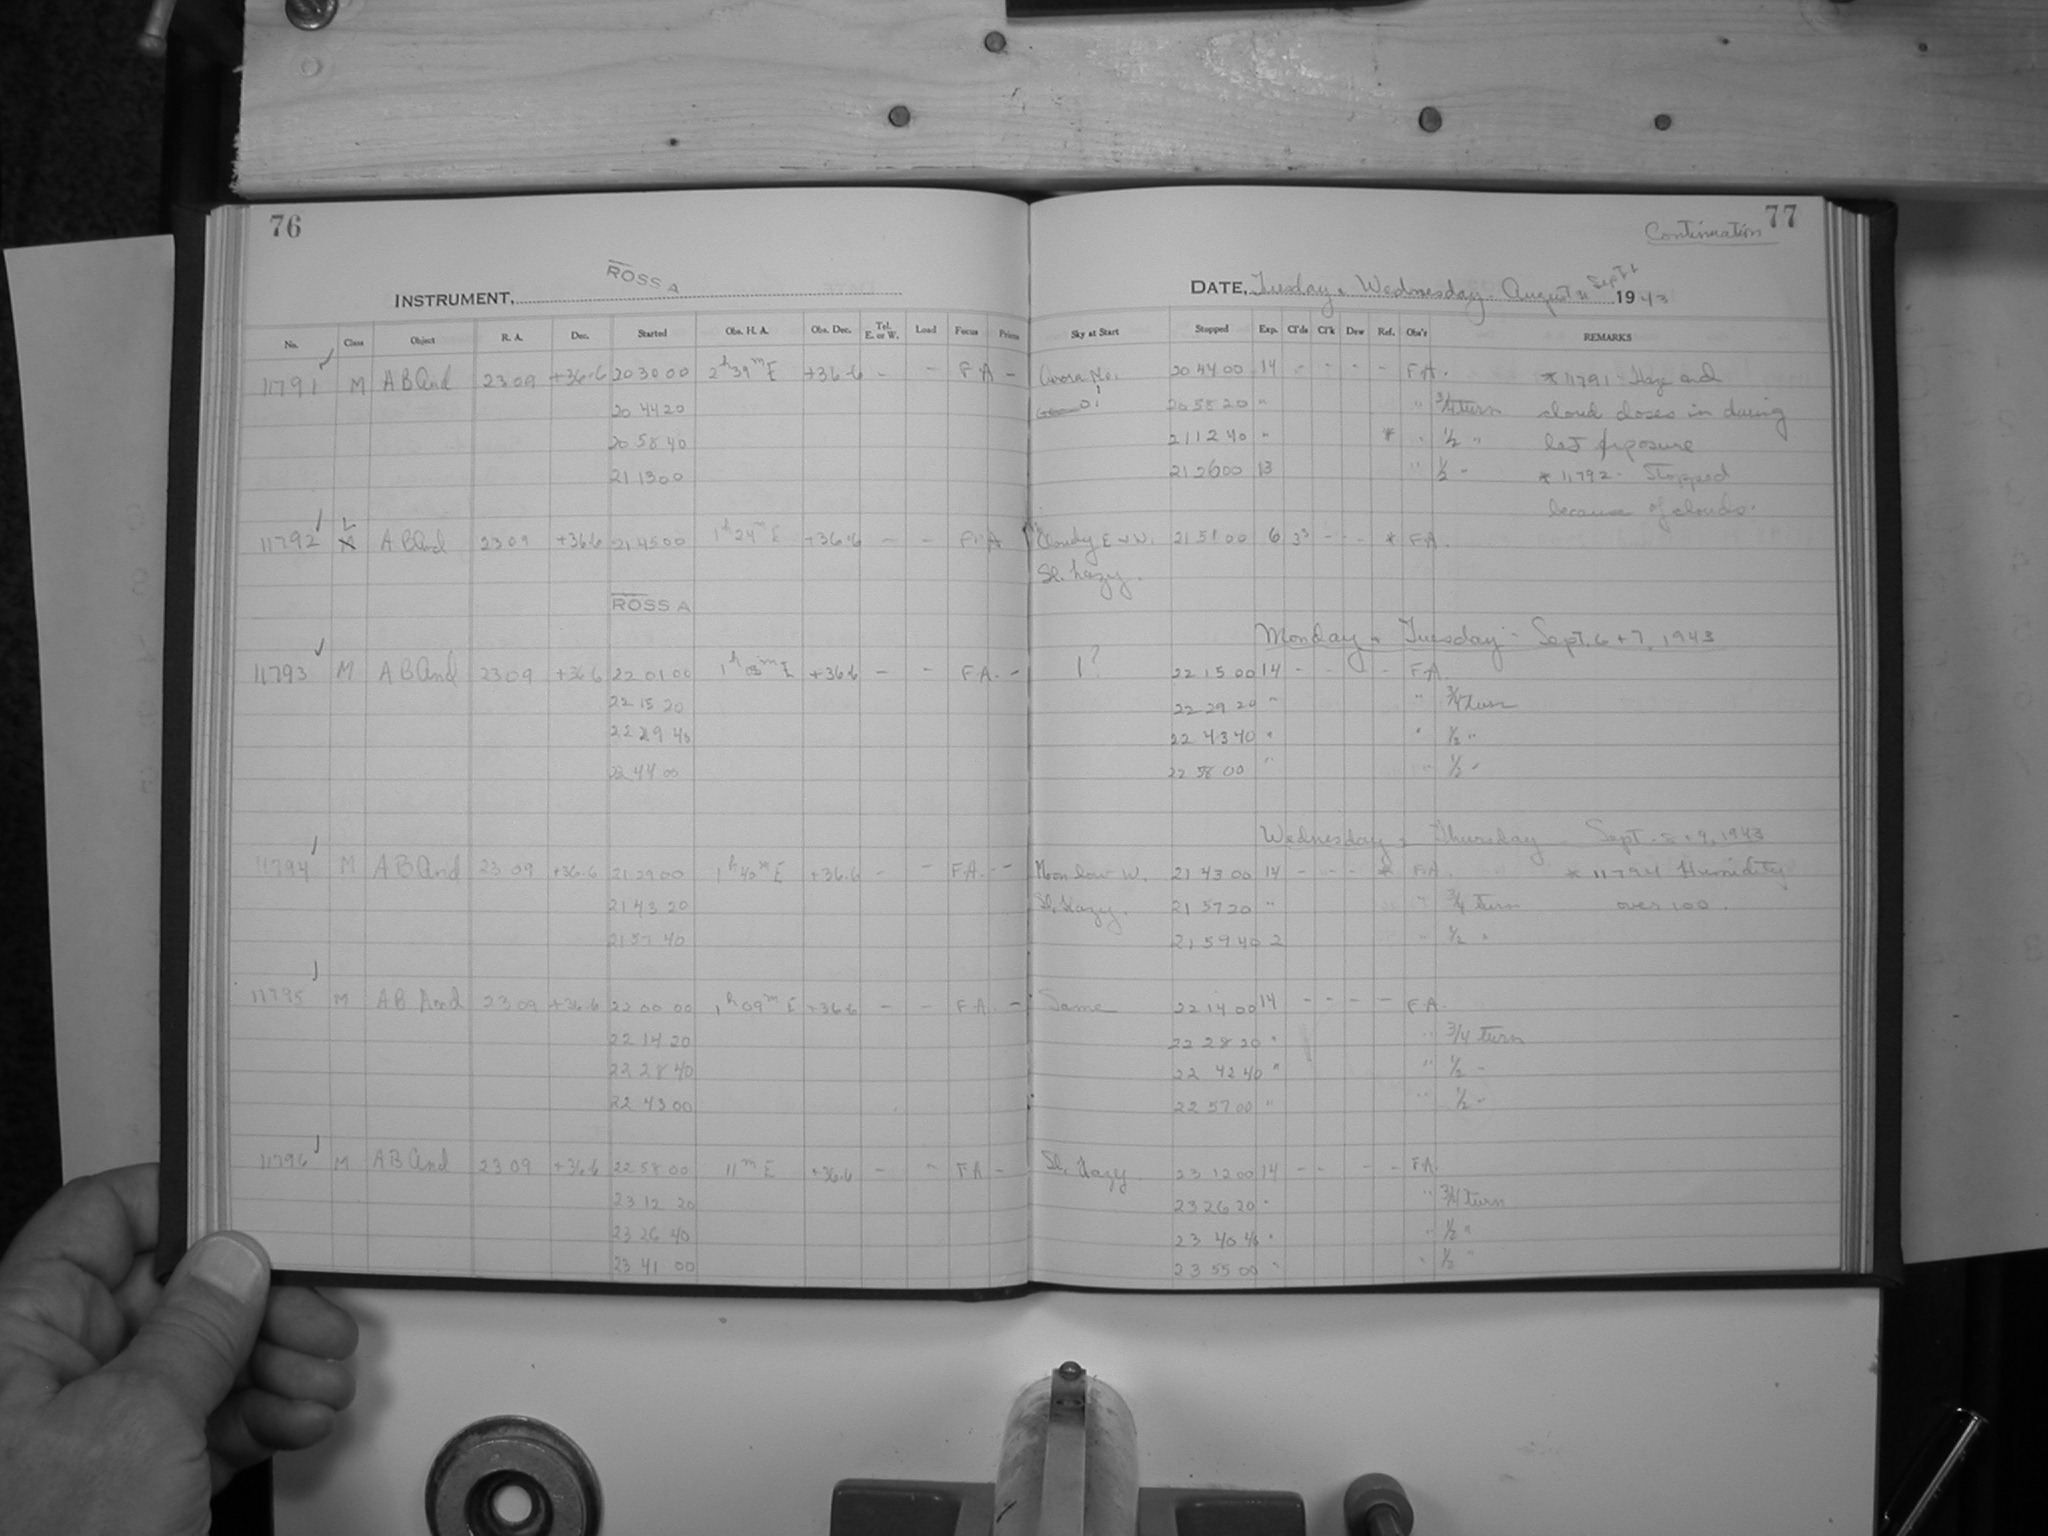 76
ROSS A
INSTRUMENT,
No. Class Object R. A. Dec. Started Obs. H. A. Obs. Dec. Tel. E. or W. Load Focus Prisms
11791 M A B And 23 09 +36.6 20 30 00 2h 39m E +36.6 - - F A -
20 44 20
20 58 40
21 13 00
11792 A B And 23 09 +36.6 21 45 00 1h 24m E +36.6 - - F A
ROSS A
11793 M A B And 23 09 +36.6 22 01 00 1h 08m E +36.6 - - F A. -
22 15 20
22 29 40
22 44 00
11794 M A B And 23 09 +36.6 21 29 00 1h 40m E +36.6 - - F A. --
21 43 20
21 57 40
11795 M A B And 23 09 +36.6 22 00 00 1h 09m E +36.6 - - F A. -
22 14 20
22 28 40
22 43 00
11796 M A B And 23 09 +36.6 22 58 00 11m E +36.6 - - F A -
23 12 20
23 26 40
23 41 00
77
Continuation
DATE, Tuesday & Wednesday. August 31 Sept 1 1943
Sky at Start Stopped Exp. Cl'ds Cl'k Dew Ref. Obs'r REMARKS
No. 20 44 00 14 - - - - F A. * 11791 - Haze and
20 58 20 " " 3/4 turn cloud closes in during
21 12 40 " * " 1/2 " last exposure
21 26 00 13 " 1/2 " * 11792 - Stopped
because of clouds.
Cloudy E & W. 21 51 00 6 - - - * F A.
Sl. hazy.
Monday & Tuesday - Sept. 6 + 7, 1943
1? 22 15 00 14 - - - - F A.
22 29 20 " " 3/4 turn
22 43 40 " " 1/2 "
22 58 00 " " 1/2 "
Wednesday & Thursday - Sept. 8 + 9, 1943
Moon low W. 21 43 00 14 - - - * F A. * 11794 Humidity
Sl. Hazy. 21 57 20 " " 3/4 turn over 100.
21 59 40 2 " 1/2 "
Same 22 14 00 14 - - - - F A.
22 28 20 " " 3/4 turn
22 42 40 " " 1/2 "
22 57 00 " " 1/2 "
Sl. Hazy 23 12 00 14 - - - - F A
23 26 20 " " 3/4 turn
23 40 40 " " 1/2 "
23 55 00 " " 1/2 "